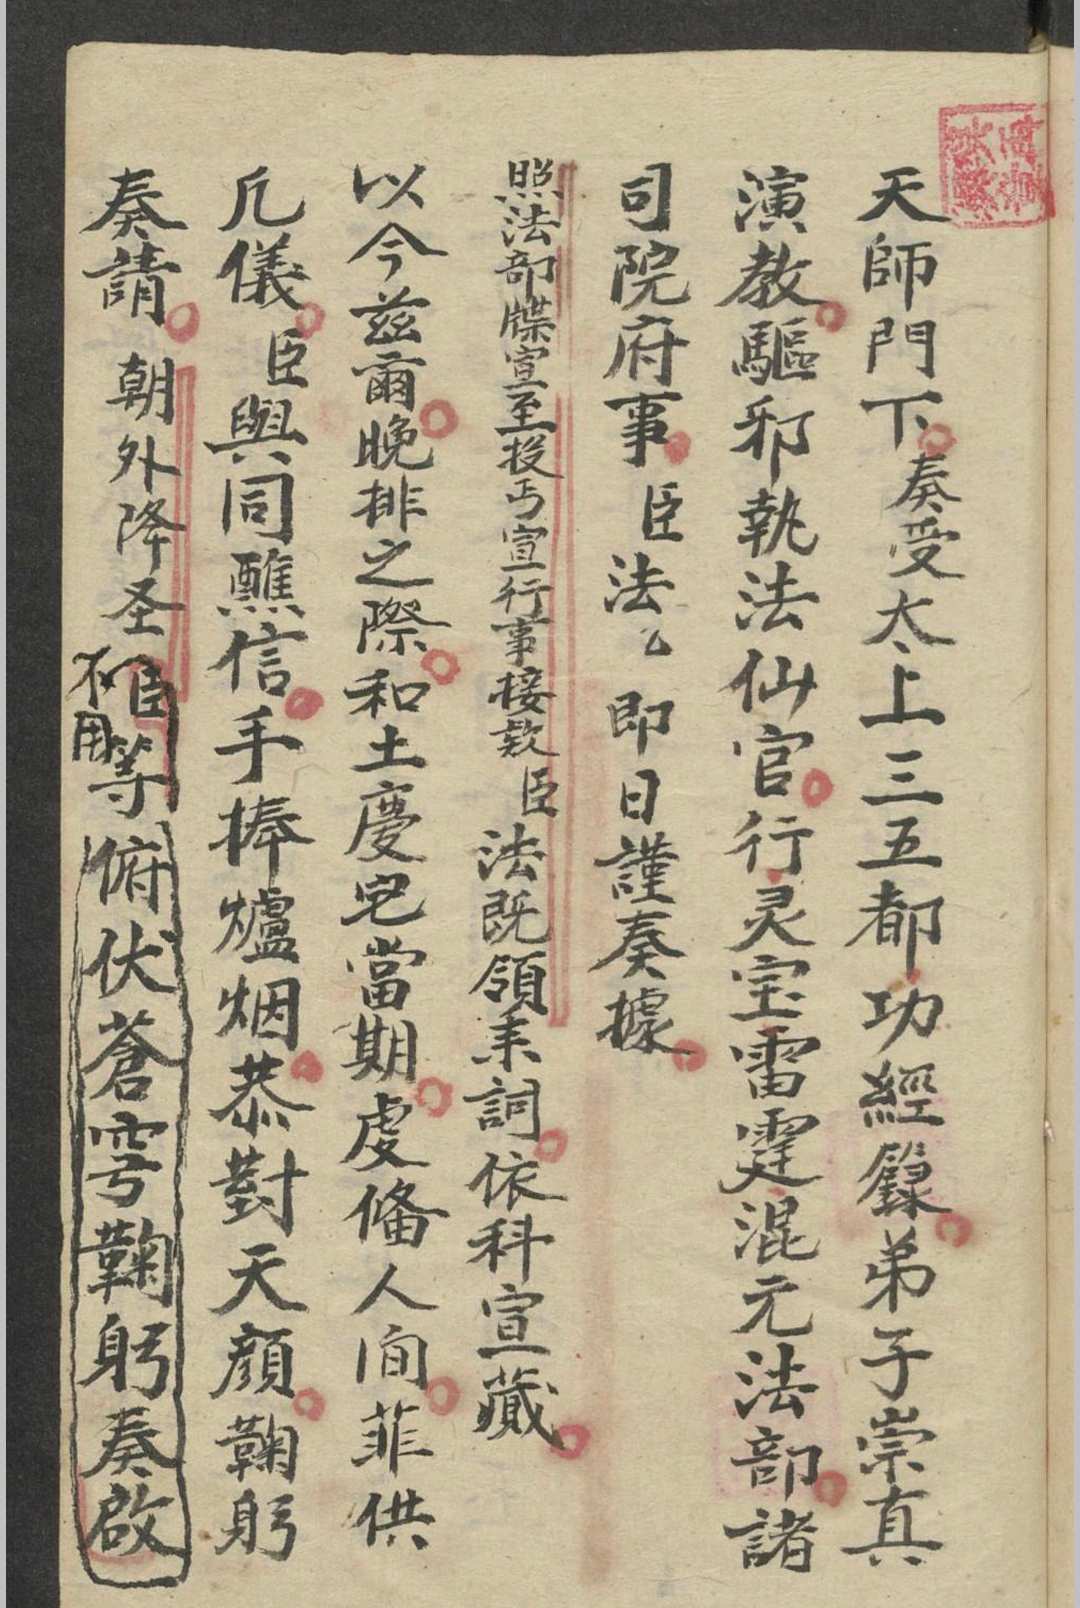 天師門下奏受太上三五都功經籙弟子崇真
演教驅邪執法仙官行灵宝雷霆混元法部諸
司院府事臣法 即日謹奏據
照法部牒宣至投丐宣行事接款臣法既領来詞依科宣藏
以今兹爾晚排之際和土慶 當期虔偹人间菲供
凢儀臣與同醮信手捧爐烟恭對天顔鞠躬
奏請朝外降圣臣等俯伏蒼穹鞠躬奏啟
不用